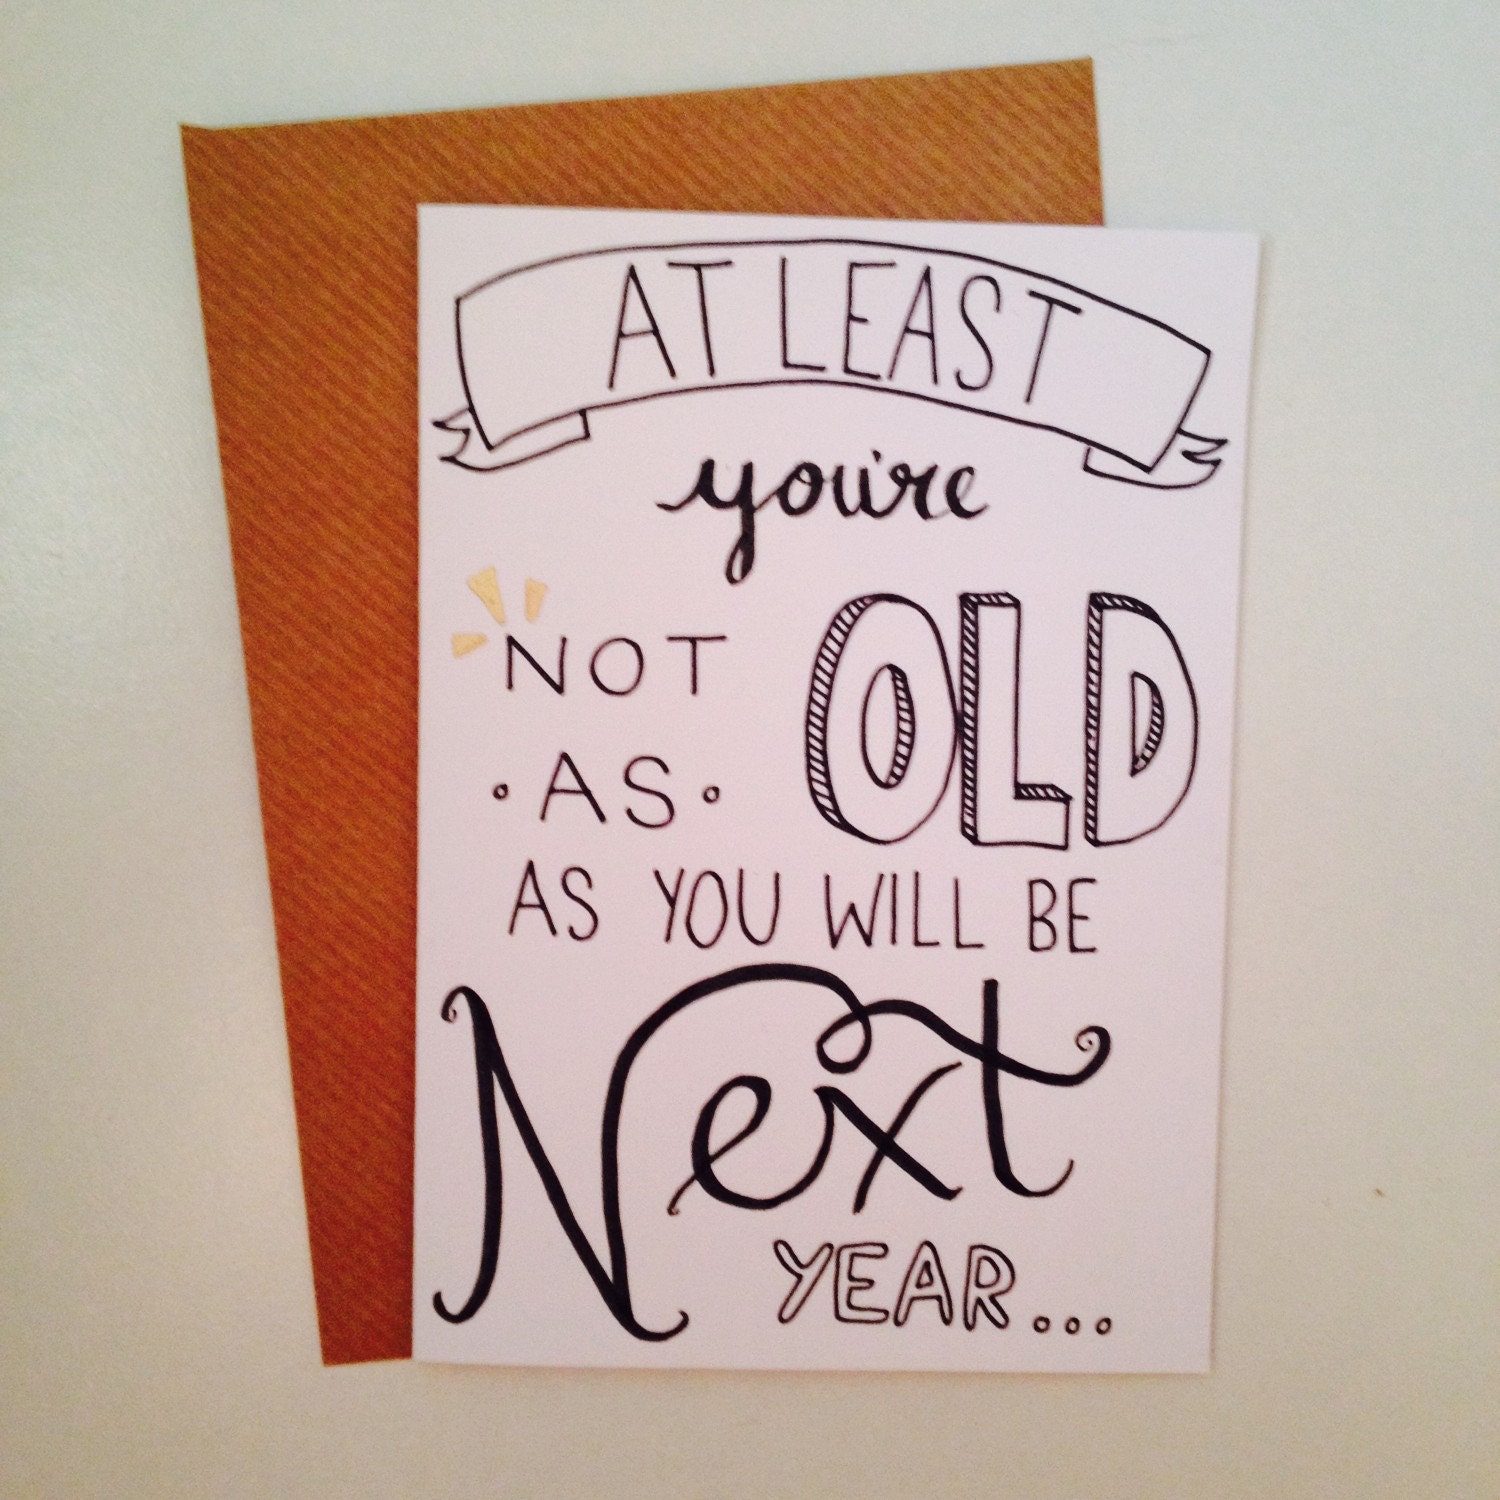 AT LEAST
you're
NOT
·AS· OLD
AS YOU WILL BE
Next
YEAR...